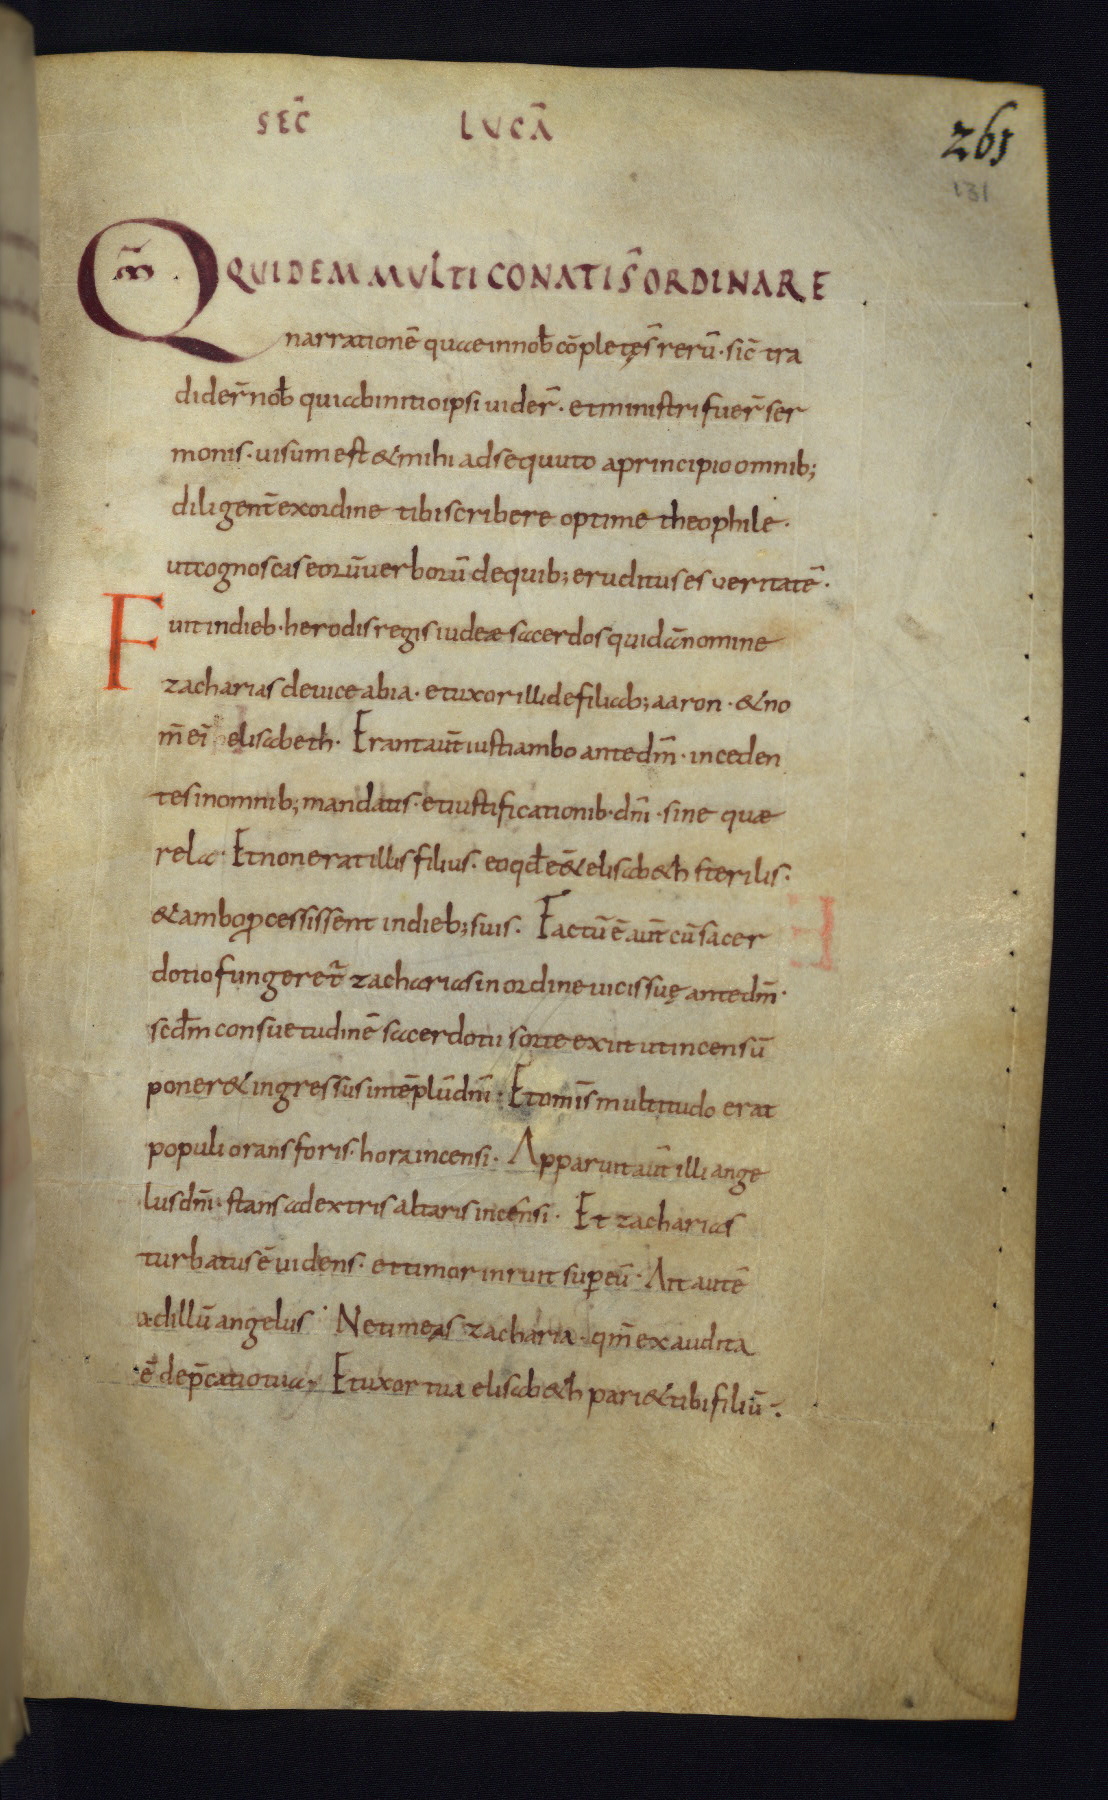 SEC̄ LUCĀ
261
131
Qm̄ QUIDEM MULTI CONATI S̄ ORDINARE
narrationē quae in nob̄ cōpletęs̄ rerū · sic̄ tra
dider̄ nob̄ qui ab initio ipsi uider̄ · et ministri fuer̄ ser
monis · uisum est & mihi adsequuto a principio omnib;
diligent̄ ex ordine tibi scribere optime theophile ·
ut cognoscas eorū uerborū de quib; eruditus es veritatē ·
Fuit in dieb · herodis regis iudeæ sacerdos quidā nomine
zacharias de uice abia · et uxor illi de filiab; aaron · & no
m̄ eī elisabeth · Erant aut̄ iusti ambo ante dm̄ · inceden
tes in omnib; mandatis · et iustificationib · dn̄i · sine quæ
rela · Et non erat illis filius · eo qd̄ e&̄ elisab&h sterilis ·
& ambo ꝓcessissent in dieb; suis · Factū ē aut̄ cū sacer
dotio fungeret̄ zacharias in ordine uicis suę ante dm̄ ·
scd̄m consuetudinē sacerdotii sorte exiit ut incensū
poner& ingressus in tēplū dn̄i · Et om̄is multitudo erat
populi orans foris · hora incensi · Apparuit aut̄ illi ange
lus dn̄i · stans a dextris altaris incensi · Et zacharias
turbatus ē uidens · et timor inruit sup̲ eū · Ait autē
ad illū angelus · Ne timeas zacharia · qm̄ exaudita
ē dep̄catio tua · Et uxor tua elisab&h pari& tibi filiū ·